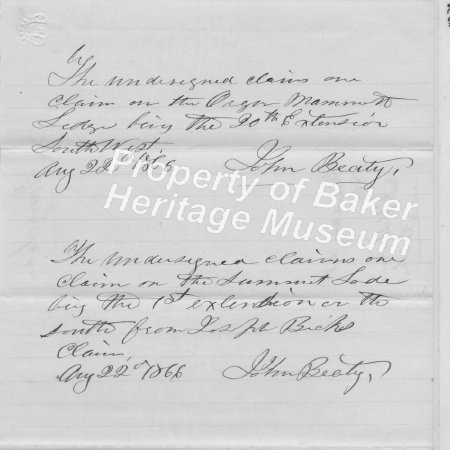 The undersigned claims one
claim on the Oregon Mammoth
Ledge being the 20th Extension
South West,
Aug 22d 1866 John Beaty,
Property of Baker
Heritage Museum
The undersigned claims one
claim on the Summit Lode
big the 1st extenstion on the
south from Joseph Bicks
Claim,
Aug 22d 1866 John Beaty,